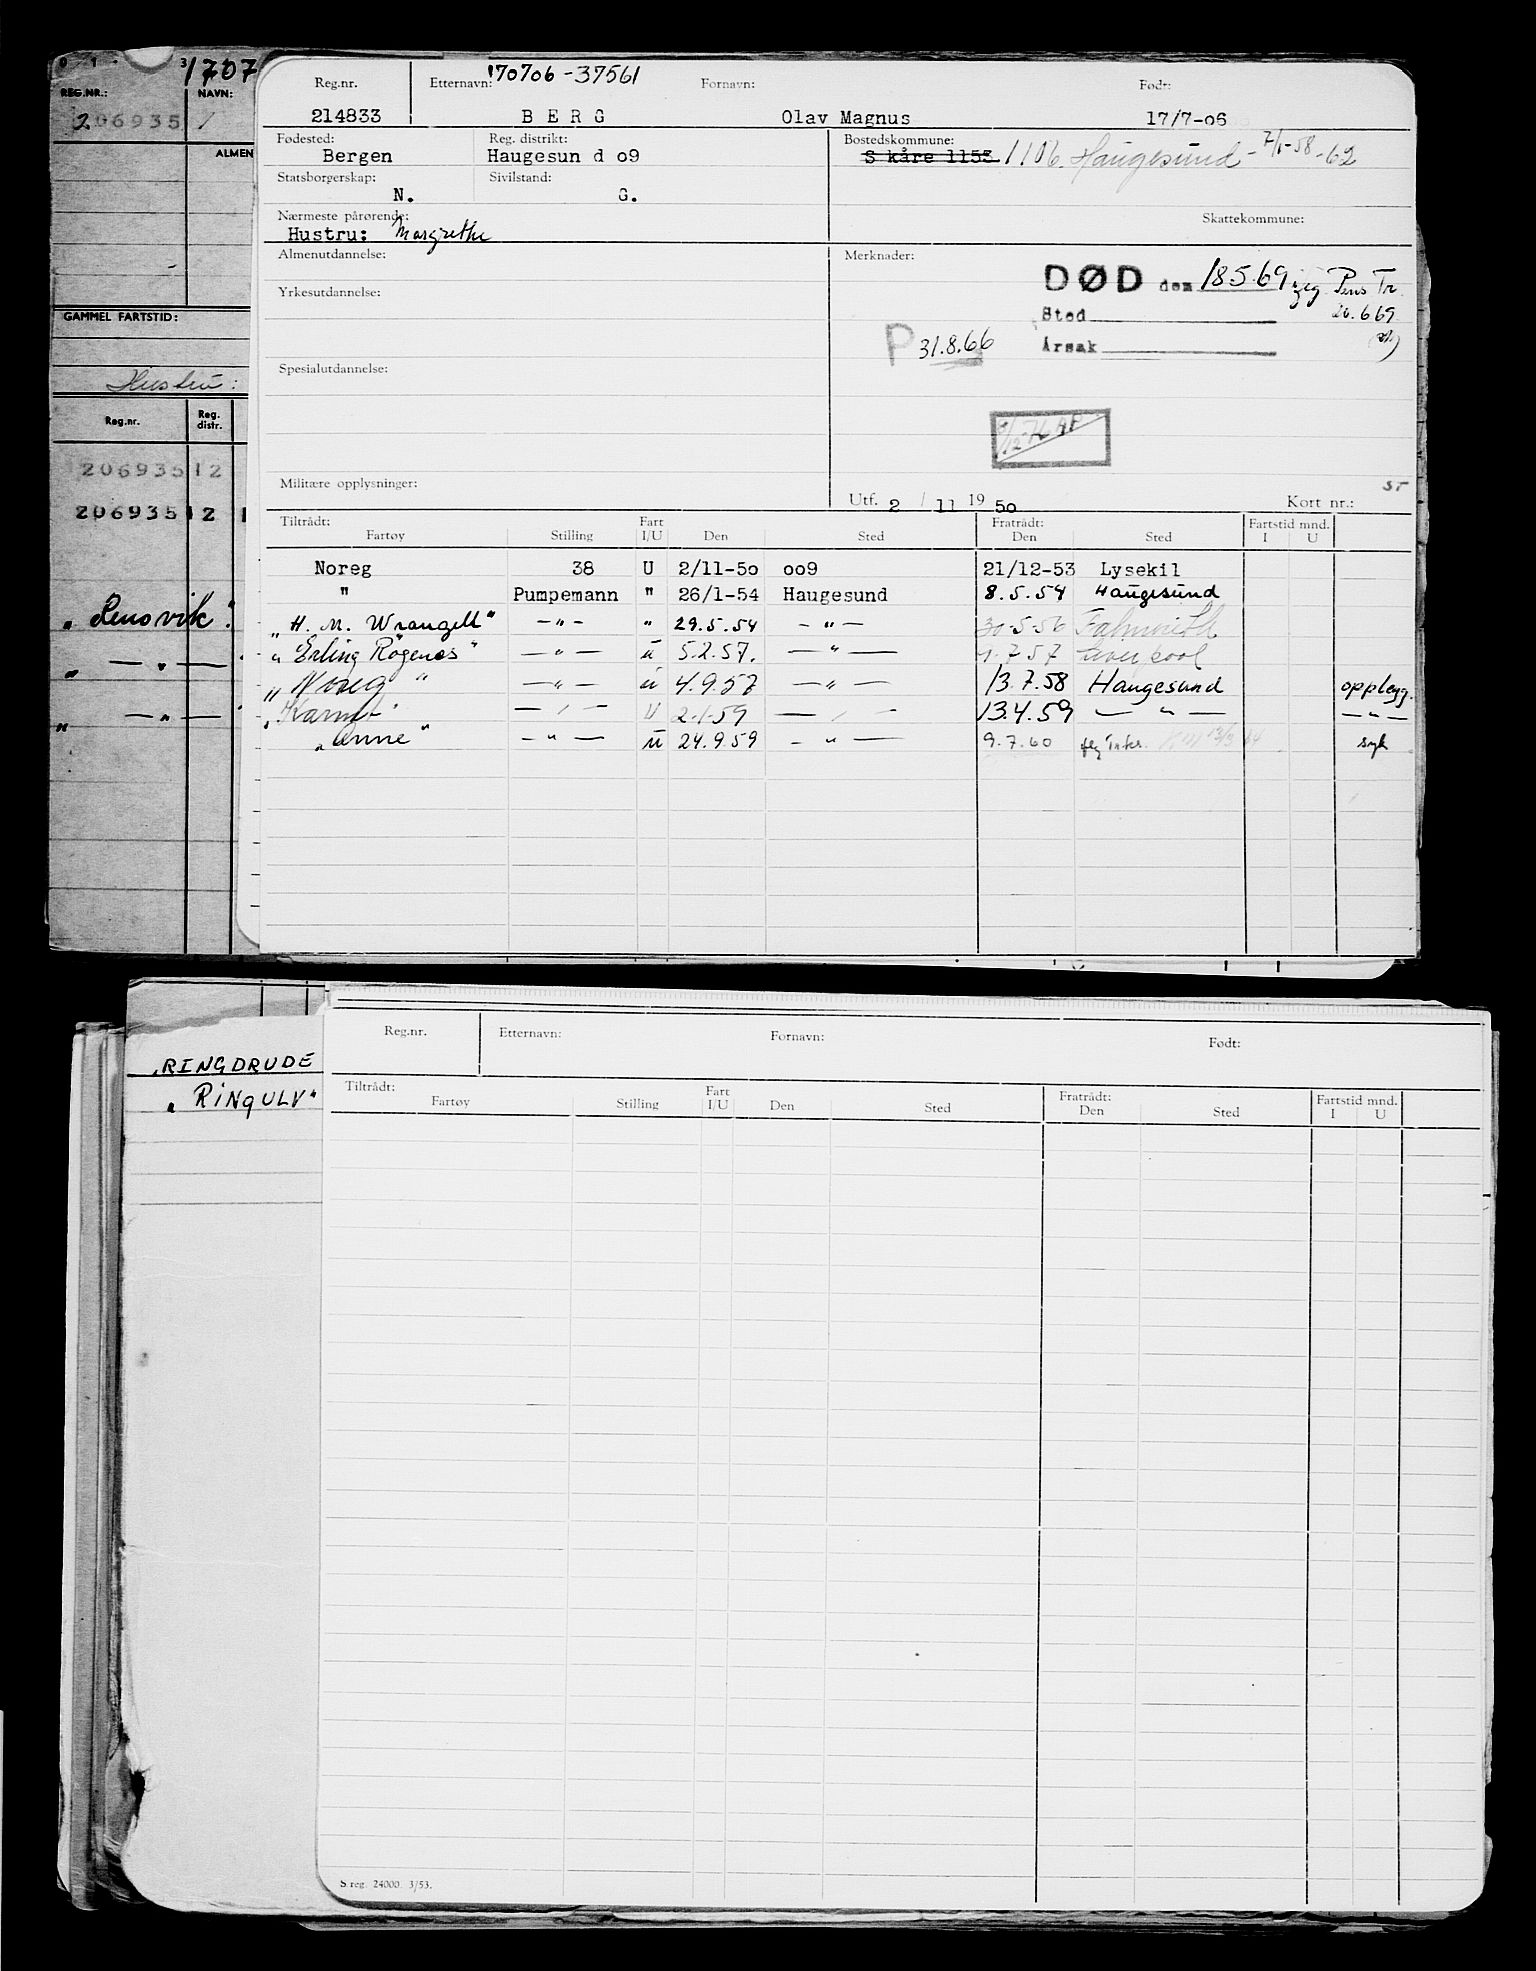 0 1 3
1707
REG.NR.: NAVN:
206935 1
ALMEN
GAMMEL FARTSTID:
Hustru:
Reg.nr. Reg. distr.
206935 12
206935 12 1
"Lenovik"
" — " —
" — " —
170706-37561
Reg.nr. Etternavn: Fornavn: Født:
214833 B E R G Olav Magnus 17/7-06
Fødested: Reg. distrikt: Bostedskommune:
Bergen Haugesun d o9 S kåre 1153 1106 Haugesund - 7/1-58 -62
Statsborgerskap: Sivilstand:
N. G.
Nærmeste pårørende: Skattekommune:
Hustru: Margrethe
Almenutdannelse: Merknader:
DØD den 18.5.69 Pens Tr.
Yrkesutdannelse:
Sted 26.6.69
P 31.8.66
Årsak
Spesialutdannelse:
Militære opplysninger:
Utf. 2 / 11 19 50 Kort nr.: ST
Tiltrådt: Fart Fratrådt: Fartstid mnd.
Fartøy Stilling I/U Den Sted Den Sted I U
Noreg 38 U 2/11-5o oo9 21/12-53 Lysekil
" Pumpemann " 26/1-54 Haugesund 8.5.54 Haugesund
"H. M. Wrangell" —"— " 29.5.54 —"— 30-5-56
"Erling Røgenes" —"— u 5.2.57. —"— 1.7.57 Liverpool
"Noreg" —"— u 4.9.57 —"— 13.7.58 Haugesund opplegg.
"Karmt" —"— U 2-1-59 —"— 13.4.59 —"— —"—
"Anne" —"— u 24.9.59 —"— 9.7.60 syk
"RINGDRUDE
"RINGULV"
Reg.nr. Etternavn: Fornavn: Født:
Tiltrådt: Fart Fratrådt: Fartstid mnd.
Fartøy Stilling I/U Den Sted Den Sted I U
S reg. 24000. 3/53.